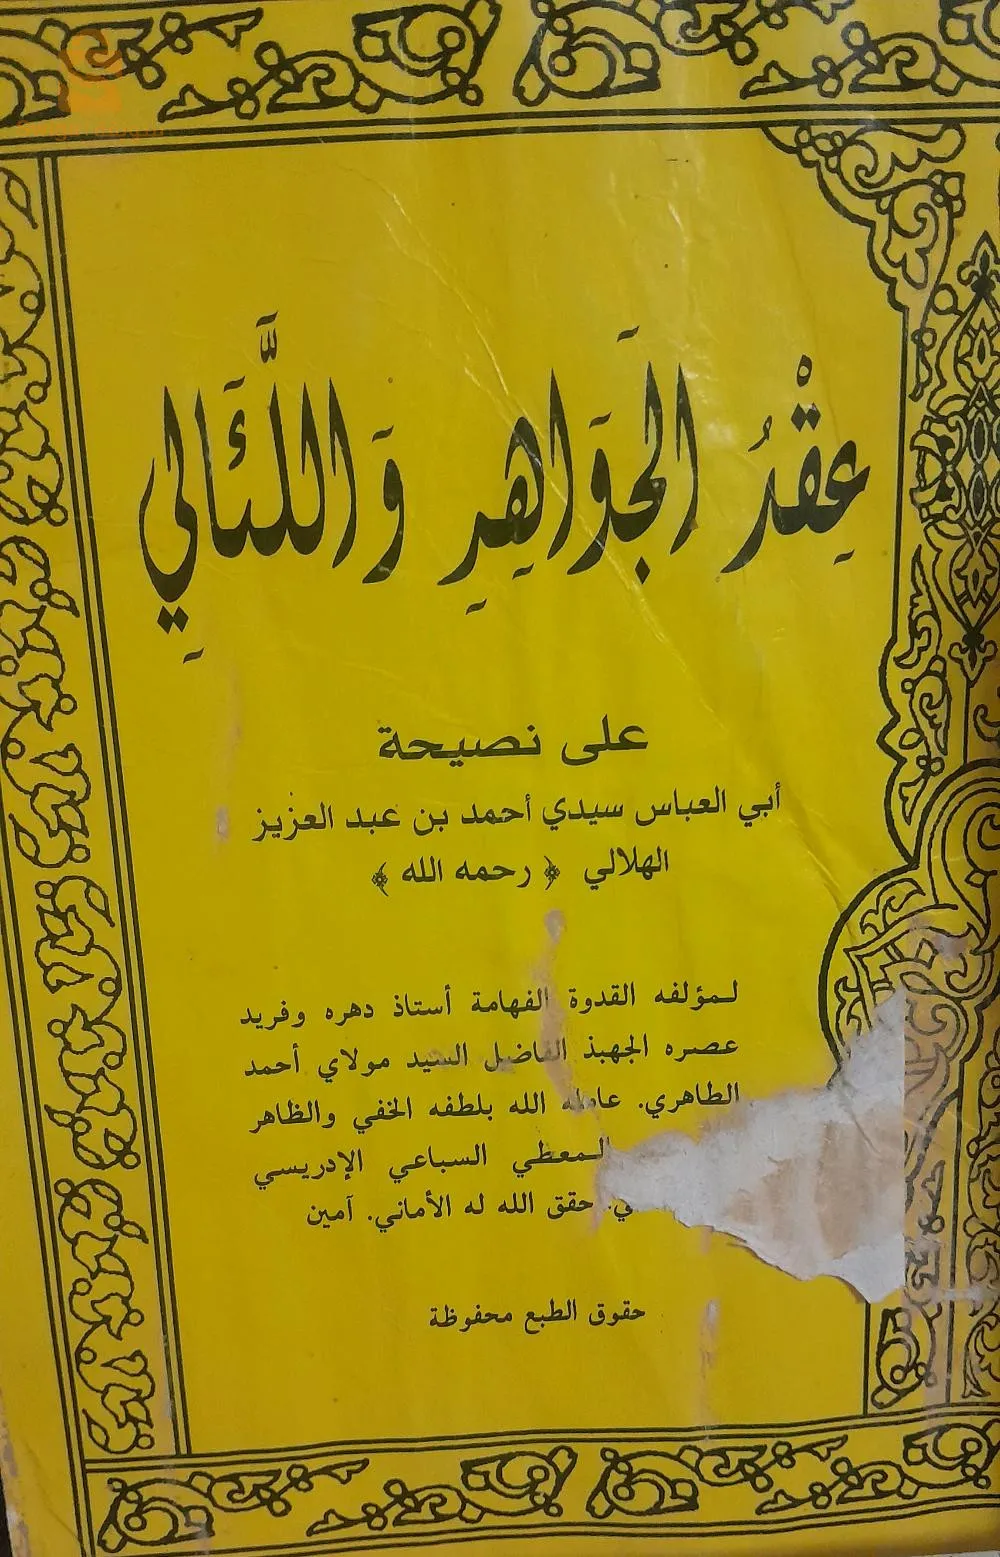 عِقْدُ الجَوَاهِرِ وَاللَّئَالِي
على نصيحة
أبي العباس سيدي أحمد بن عبد العزيز
الهلالي ﴿ رحمه الله ﴾
لـمؤلفه القدوة الفهامة أستاذ دهره وفريد
عصره الجهبذ الفاضل السيد مولاي أحمد
الطاهري. عامله الله بلطفه الخفي والظاهر
الـمعطي السباعي الإدريسي
حقق الله له الأماني. آمين
حقوق الطبع محفوظة